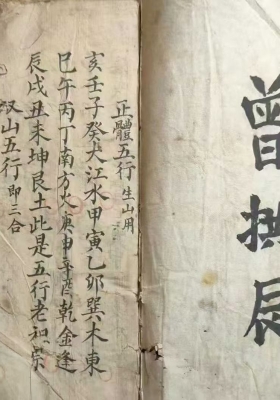 曾拱辰
正體五行生山用
亥壬子癸大江水甲寅乙卯巽木東
巳午丙丁南方火庚申辛酉乾金逢
辰戌丑未坤艮土此是五行老祖宗
双山五行即三合